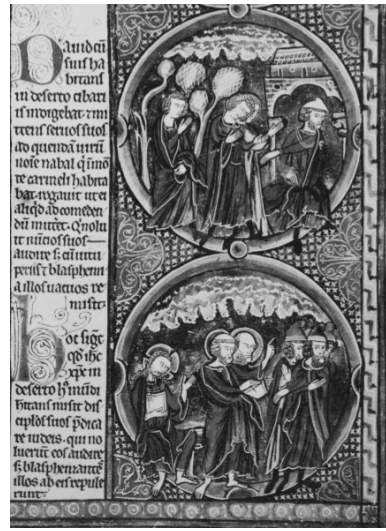 Dauid cū
suis ha
bitans
in deserto cibari
is indigebat. 7 mi
tens seruos suos
ad quendā uirū
noīe nabal q̄ i mō
te carmeli habita
bat. rogauit ut ei
aliqd ad comeden
dū mittet. Q̇ noluit
nūcios suos
audire s̄
blasphem
illos uacuos re
misit.
Hoc sigt
qd ihc
xpc in
deserto hꝰ mūdi
hitans misit dis
ciplos suos p̄dica
re iudeis. qui no
luerūt eos audire
s̄ blasphemantes
illos ab eis repule
runt.